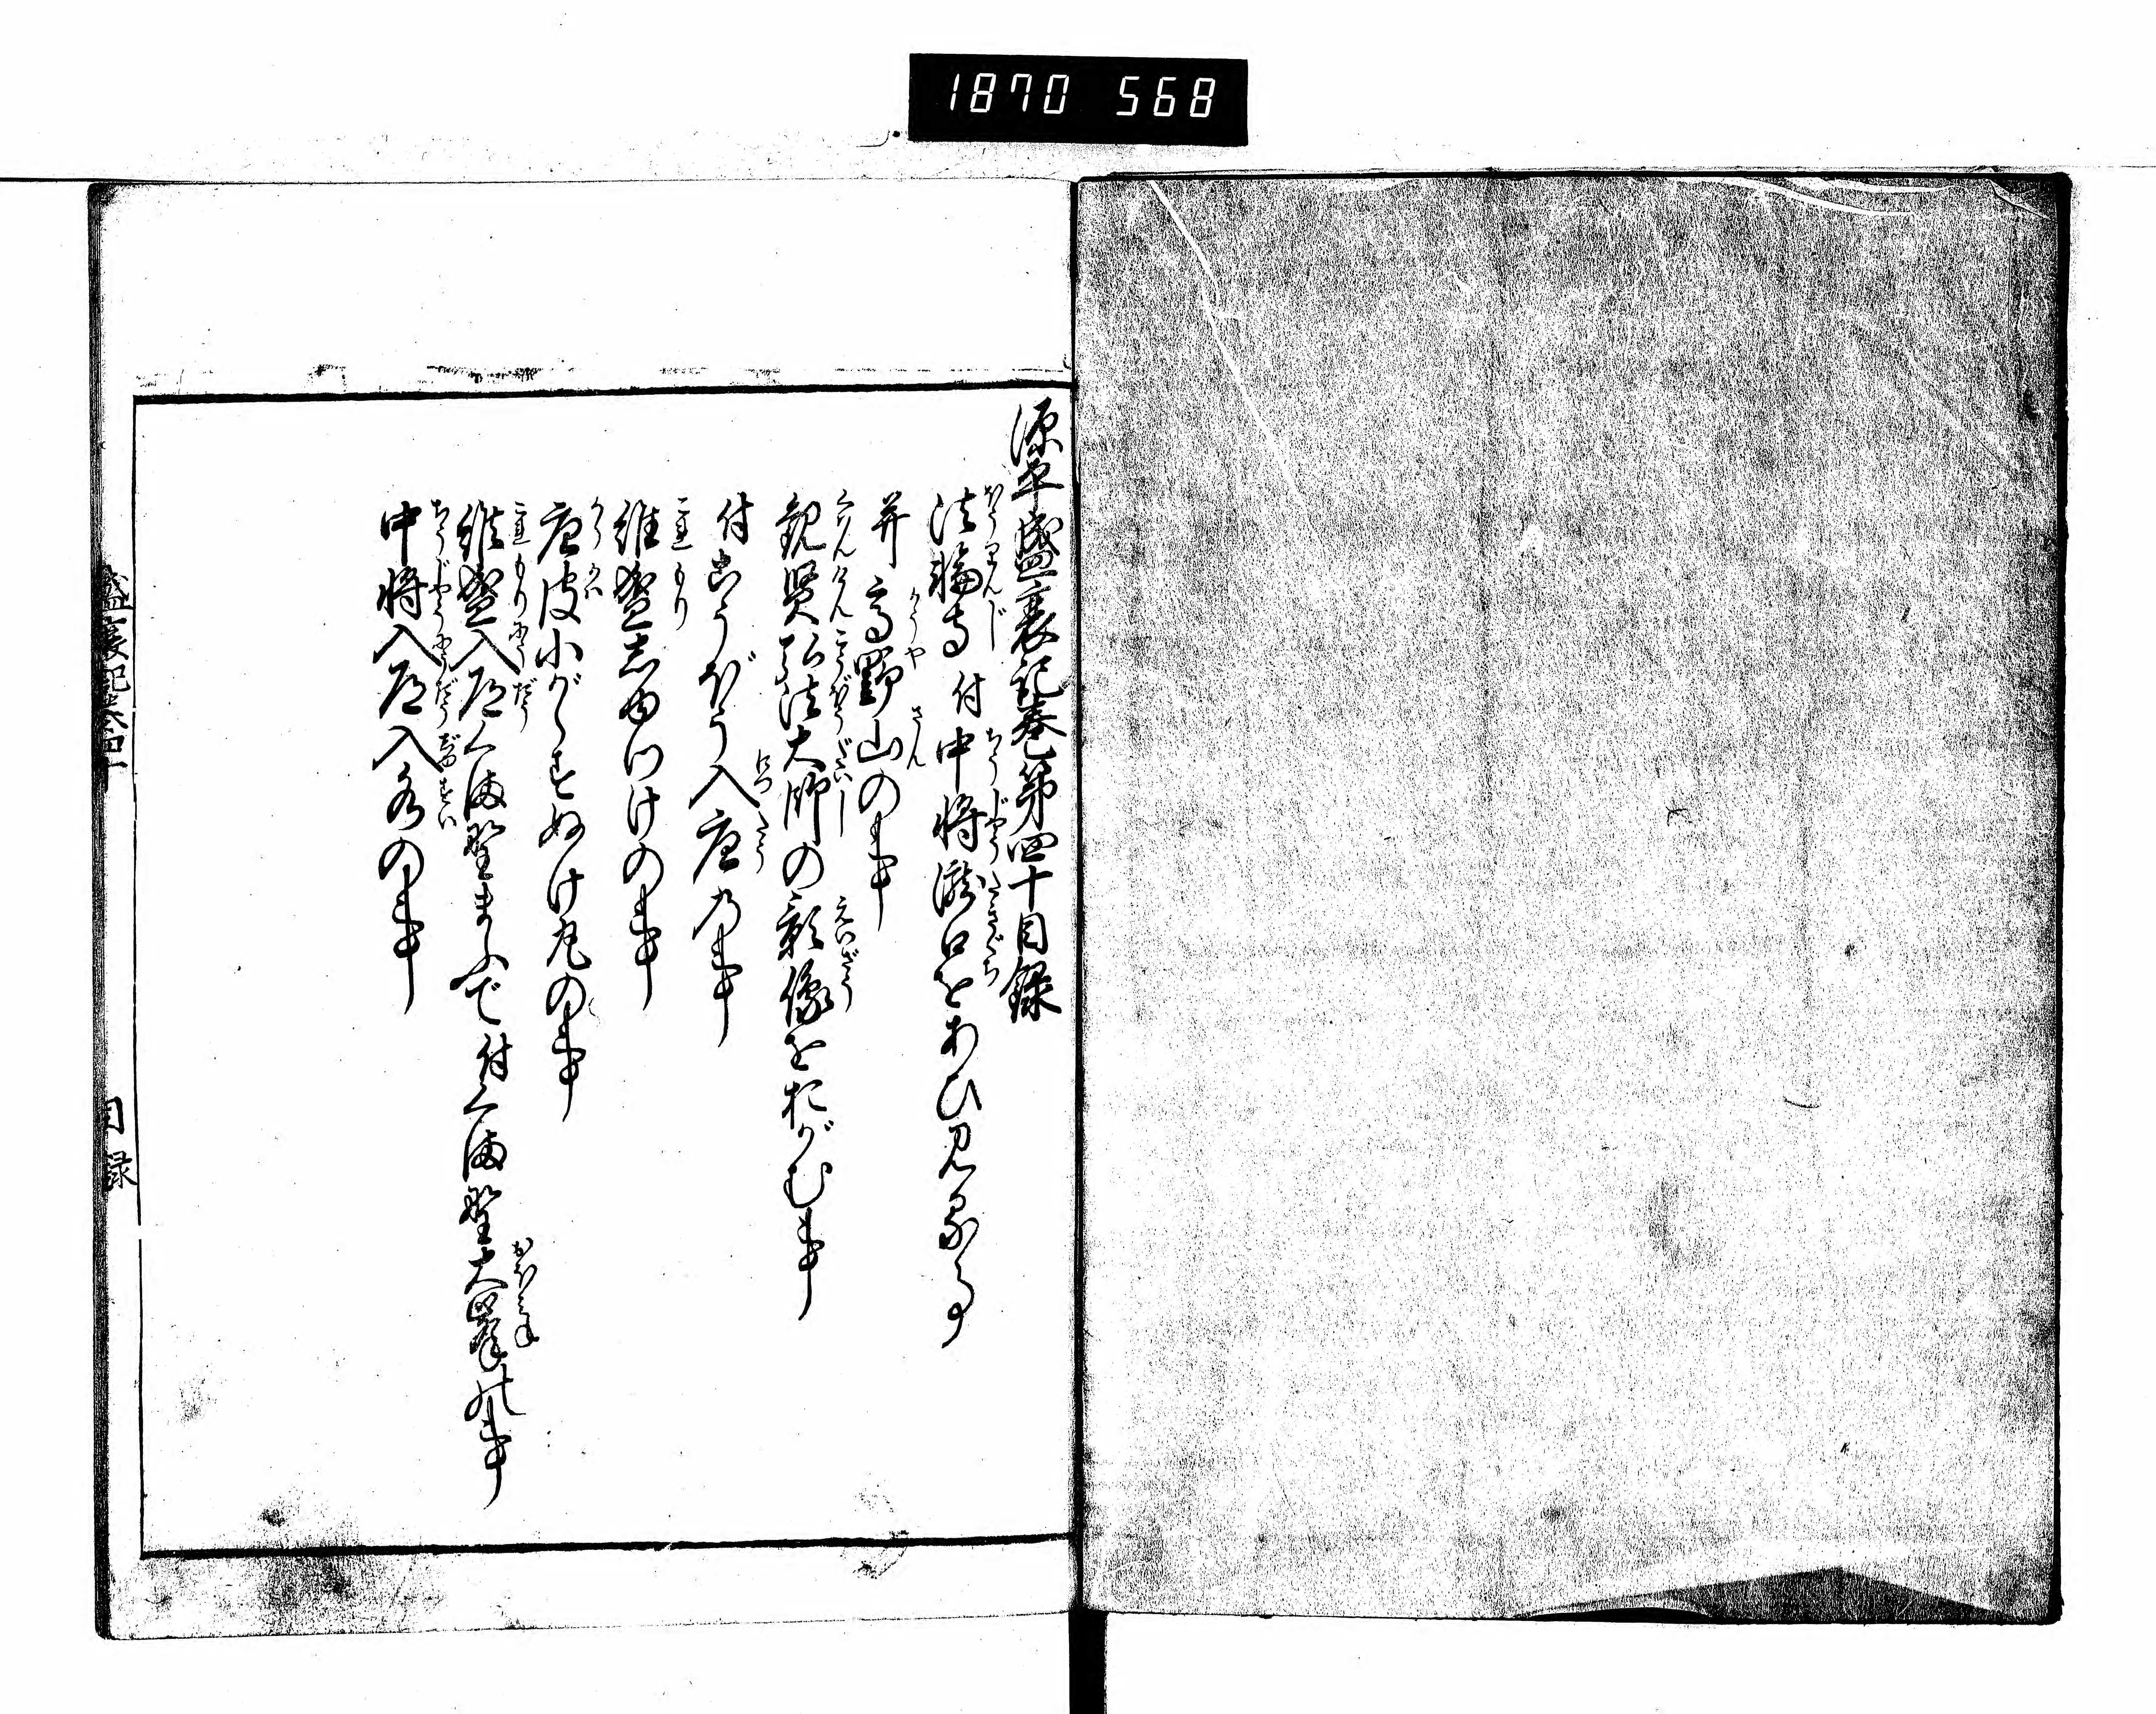 1870 568
源平盛衰記巻第四十目録
法輪寺 付中将瀧口をあひ見る事
并高野山の事
観賢弘法大師の影像をおがむ事
付こうぼう入唐乃事
維盛志ゆつけの事
唐皮小がらすぬけ丸の事
維盛入道くま野まふで 付くま野大峯の事
中将入道入水の事
盛衰記巻四十
目録